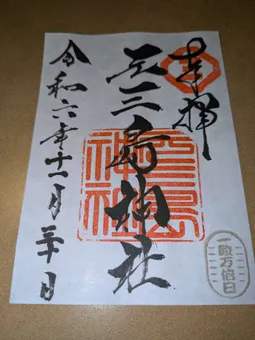 奉拝
元三島神社
三島神社
令和六年十一月三十日
一粒万倍日